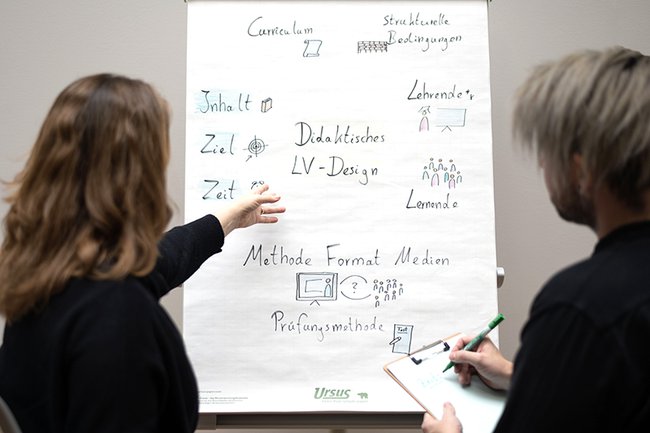 Curriculum
Strukturelle
Bedingungen
Inhalt
Lehrende*r
Ziel
Didaktisches
LV-Design
Zeit
Lernende
Methode Format Medien
?
Prüfungsmethode
Test
Ursus